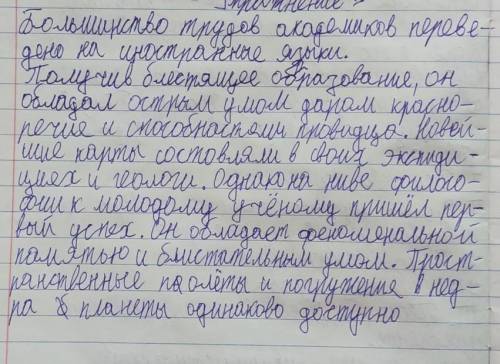 Упражнение
Большинство трудов академиков переве-
дено на иностранные языки.
Получив блестящее образование, он
обладал острым умом даром красно-
речие и способностями провидца. Новей-
шие карты состовляли в своих экспиди-
циях и геологи. Однако на ниве филосо-
фии к молодому учёному пришёл пер-
вый успех. Он обладает феноменальной
памятью и блистательным умом. Прост-
ранственные полёты и погружение в нед-
ра планеты одинаково доступно